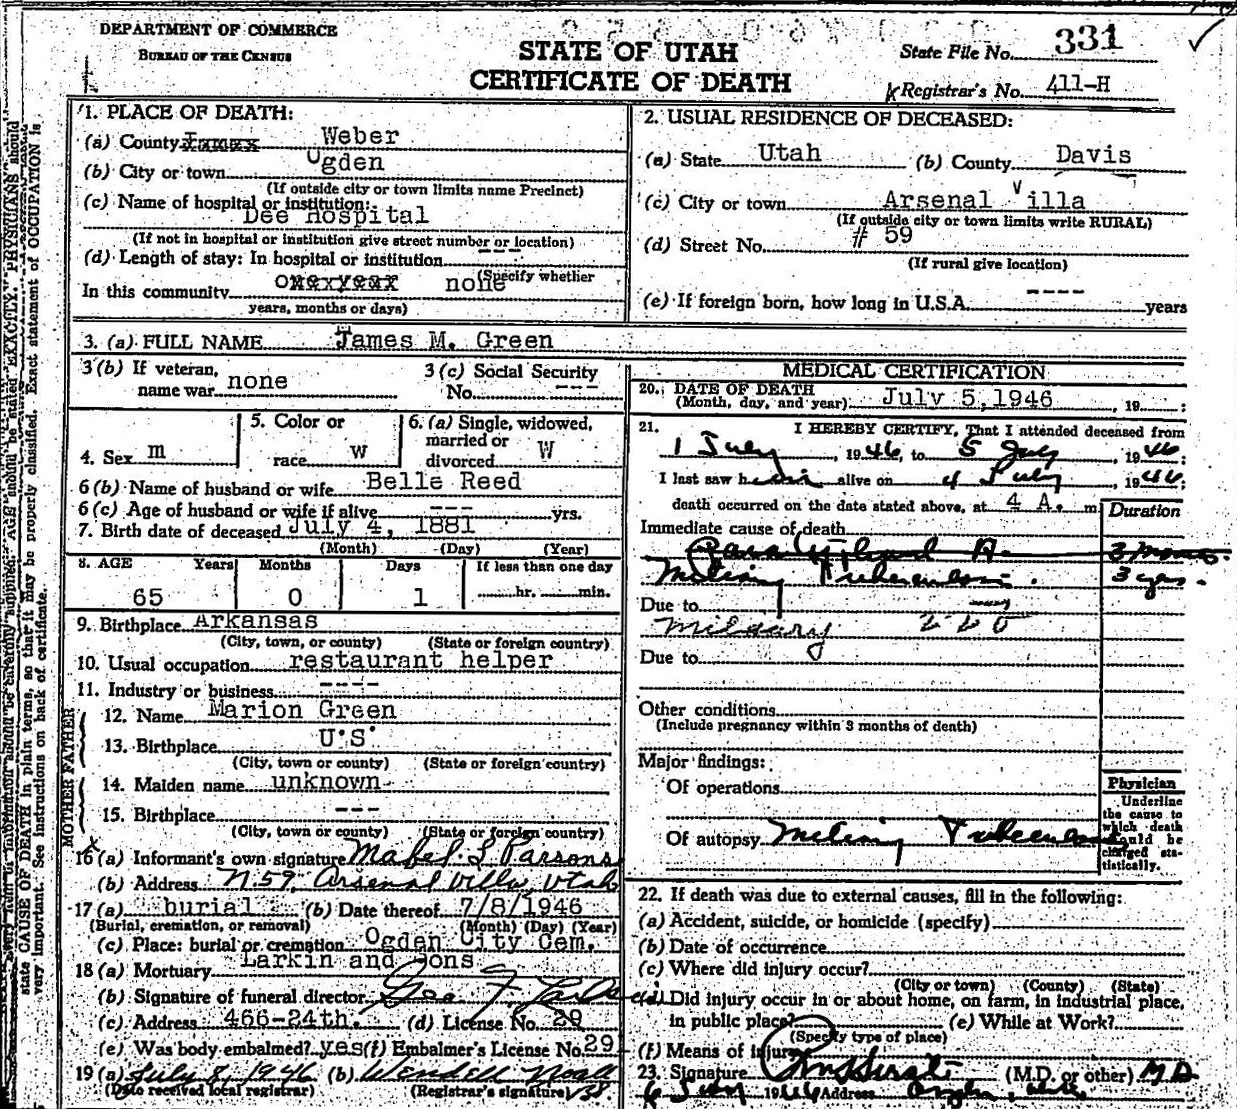 DEPARTMENT OF COMMERCE
BUREAU OF THE CENSUS
STATE OF UTAH
CERTIFICATE OF DEATH
State File No. 331
Registrar's No. 411-H
1. PLACE OF DEATH:
(a) County Weber
(b) City or town Ogden
(If outside city or town limits name Precinct)
(c) Name of hospital or institution:
Dee Hospital
(If not in hospital or institution give street number or location)
(d) Length of stay: In hospital or institution ---
(Specify whether
In this community one year none
years, months or days)
2. USUAL RESIDENCE OF DECEASED:
(a) State Utah (b) County Davis
(c) City or town Arsenal Villa
(If outside city or town limits write RURAL)
(d) Street No. # 59
(If rural give location)
(e) If foreign born, how long in U.S.A. ---- years
3. (a) FULL NAME James M. Green
3 (b) If veteran,
name war none
3 (c) Social Security
No. ---
4. Sex m
5. Color or
race w
6. (a) Single, widowed,
married or
divorced W
6 (b) Name of husband or wife Belle Reed
6 (c) Age of husband or wife if alive --- yrs.
7. Birth date of deceased July 4, 1881
(Month) (Day) (Year)
8. AGE Years Months Days If less than one day
65 0 1 hr. min.
9. Birthplace Arkansas
(City, town, or county) (State or foreign country)
10. Usual occupation restaurant helper
11. Industry or business ----
FATHER
12. Name Marion Green
13. Birthplace U.S.
(City, town or county) (State or foreign country)
MOTHER
14. Maiden name unknown
15. Birthplace ---
(City, town or county) (State or foreign country)
16 (a) Informant's own signature Mabel L Parsons
(b) Address N 59, Arsenal Villa, Utah
17 (a) burial (b) Date thereof 7/8/1946
(Burial, cremation, or removal) (Month) (Day) (Year)
(c) Place: burial or cremation Ogden City Cem.
18 (a) Mortuary Larkin and Sons
(b) Signature of funeral director Geo F Larkin
(c) Address 466-24th. (d) License No. 29
(e) Was body embalmed? yes (f) Embalmer's License No. 29
19 (a) July 8, 1946 (b) Wendell Noall
(Date received local registrar) (Registrar's signature)
MEDICAL CERTIFICATION
20. DATE OF DEATH
(Month, day, and year) July 5, 1946, 19 ;
21. I HEREBY CERTIFY, That I attended deceased from
1 July, 1946, to 5 July, 1946;
I last saw him alive on 4 July, 1946;
death occurred on the date stated above, at 4 A. m
Duration
Immediate cause of death
3 months
Miliary Tuberculosis. 3 yrs.
Due to
Miliary
Due to
Other conditions
(Include pregnancy within 3 months of death)
Major findings:
Of operations
Of autopsy Miliary Tuberculosis
Physician
Underline
the cause to
which death
should be
charged sta-
tistically.
22. If death was due to external causes, fill in the following:
(a) Accident, suicide, or homicide (specify)
(b) Date of occurrence
(c) Where did injury occur?
(City or town) (County) (State)
(d) Did injury occur in or about home, on farm, in industrial place,
in public place? (e) While at Work?
(Specify type of place)
(f) Means of injury
23. Signature (M.D. or other) M D
6 July 1946 Address Ogden, Utah
state CAUSE OF DEATH in plain terms, so that it may be properly classified. Exact statement of OCCUPATION is
very important. See instructions on back of certificate.